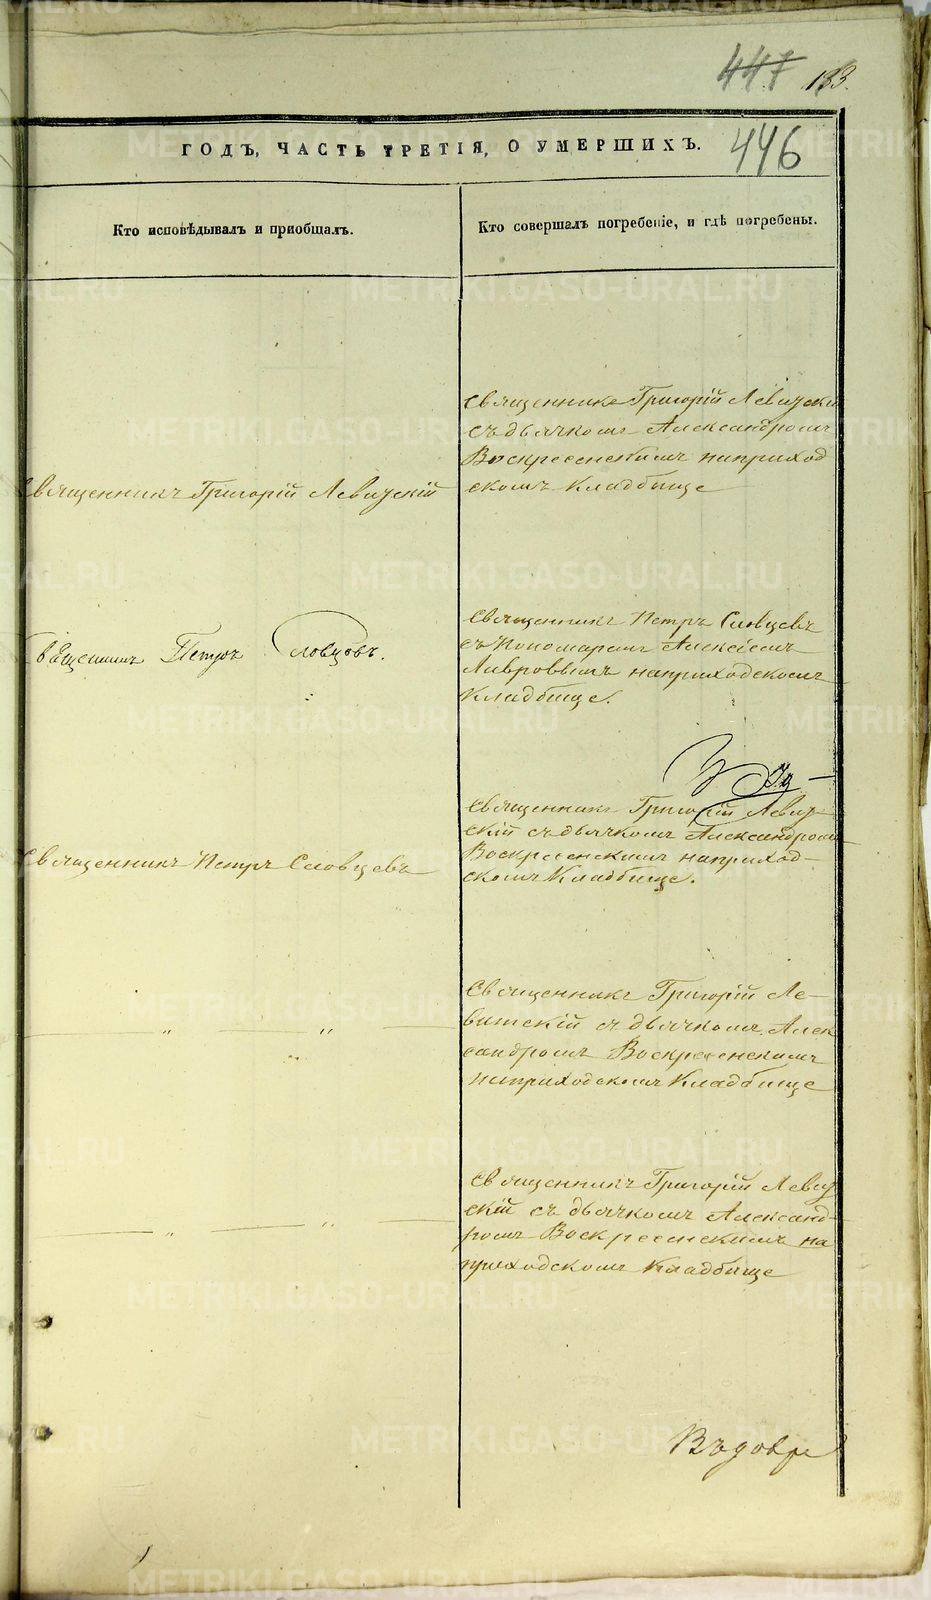 447 183.
446
ГОДЪ, ЧАСТЬ ТРЕТІЯ, О УМЕРШИХЪ.
Кто исповѣдывалъ и приобщалъ.
Кто совершалъ погребеніе, и гдѣ погребены.
Священникъ Григорій Левицскій
Священнике Григорій Левицскій
съ дьячкомъ Александромъ
Воскресенскимъ наприход
скомъ Кладбище
Священникъ Петръ Словцовъ.
Священникъ Петръ Словцевъ
съ Пономаремъ Алексіемъ
Лавровымъ наприходскомъ
Кладбище.
Священникъ Петръ Словцевъ
Священникъ Григорій Левиц-
скій съ дьячкомъ Александромъ
Воскресенскимъ наприход-
скомъ Кладбище.
— „ — „ —
Священникъ Григорій Ле-
витскій съ дьячкомъ Алек
сандромъ Воскресенскимъ
наприходскомъ Кладбище
— „ — „ —
Священникъ Григорій Левиц
скій съ дьячкомъ Александ-
ромъ Воскресенскимъ на
приходскомъ Кладбище
METRIKI.GASO-URAL.RU